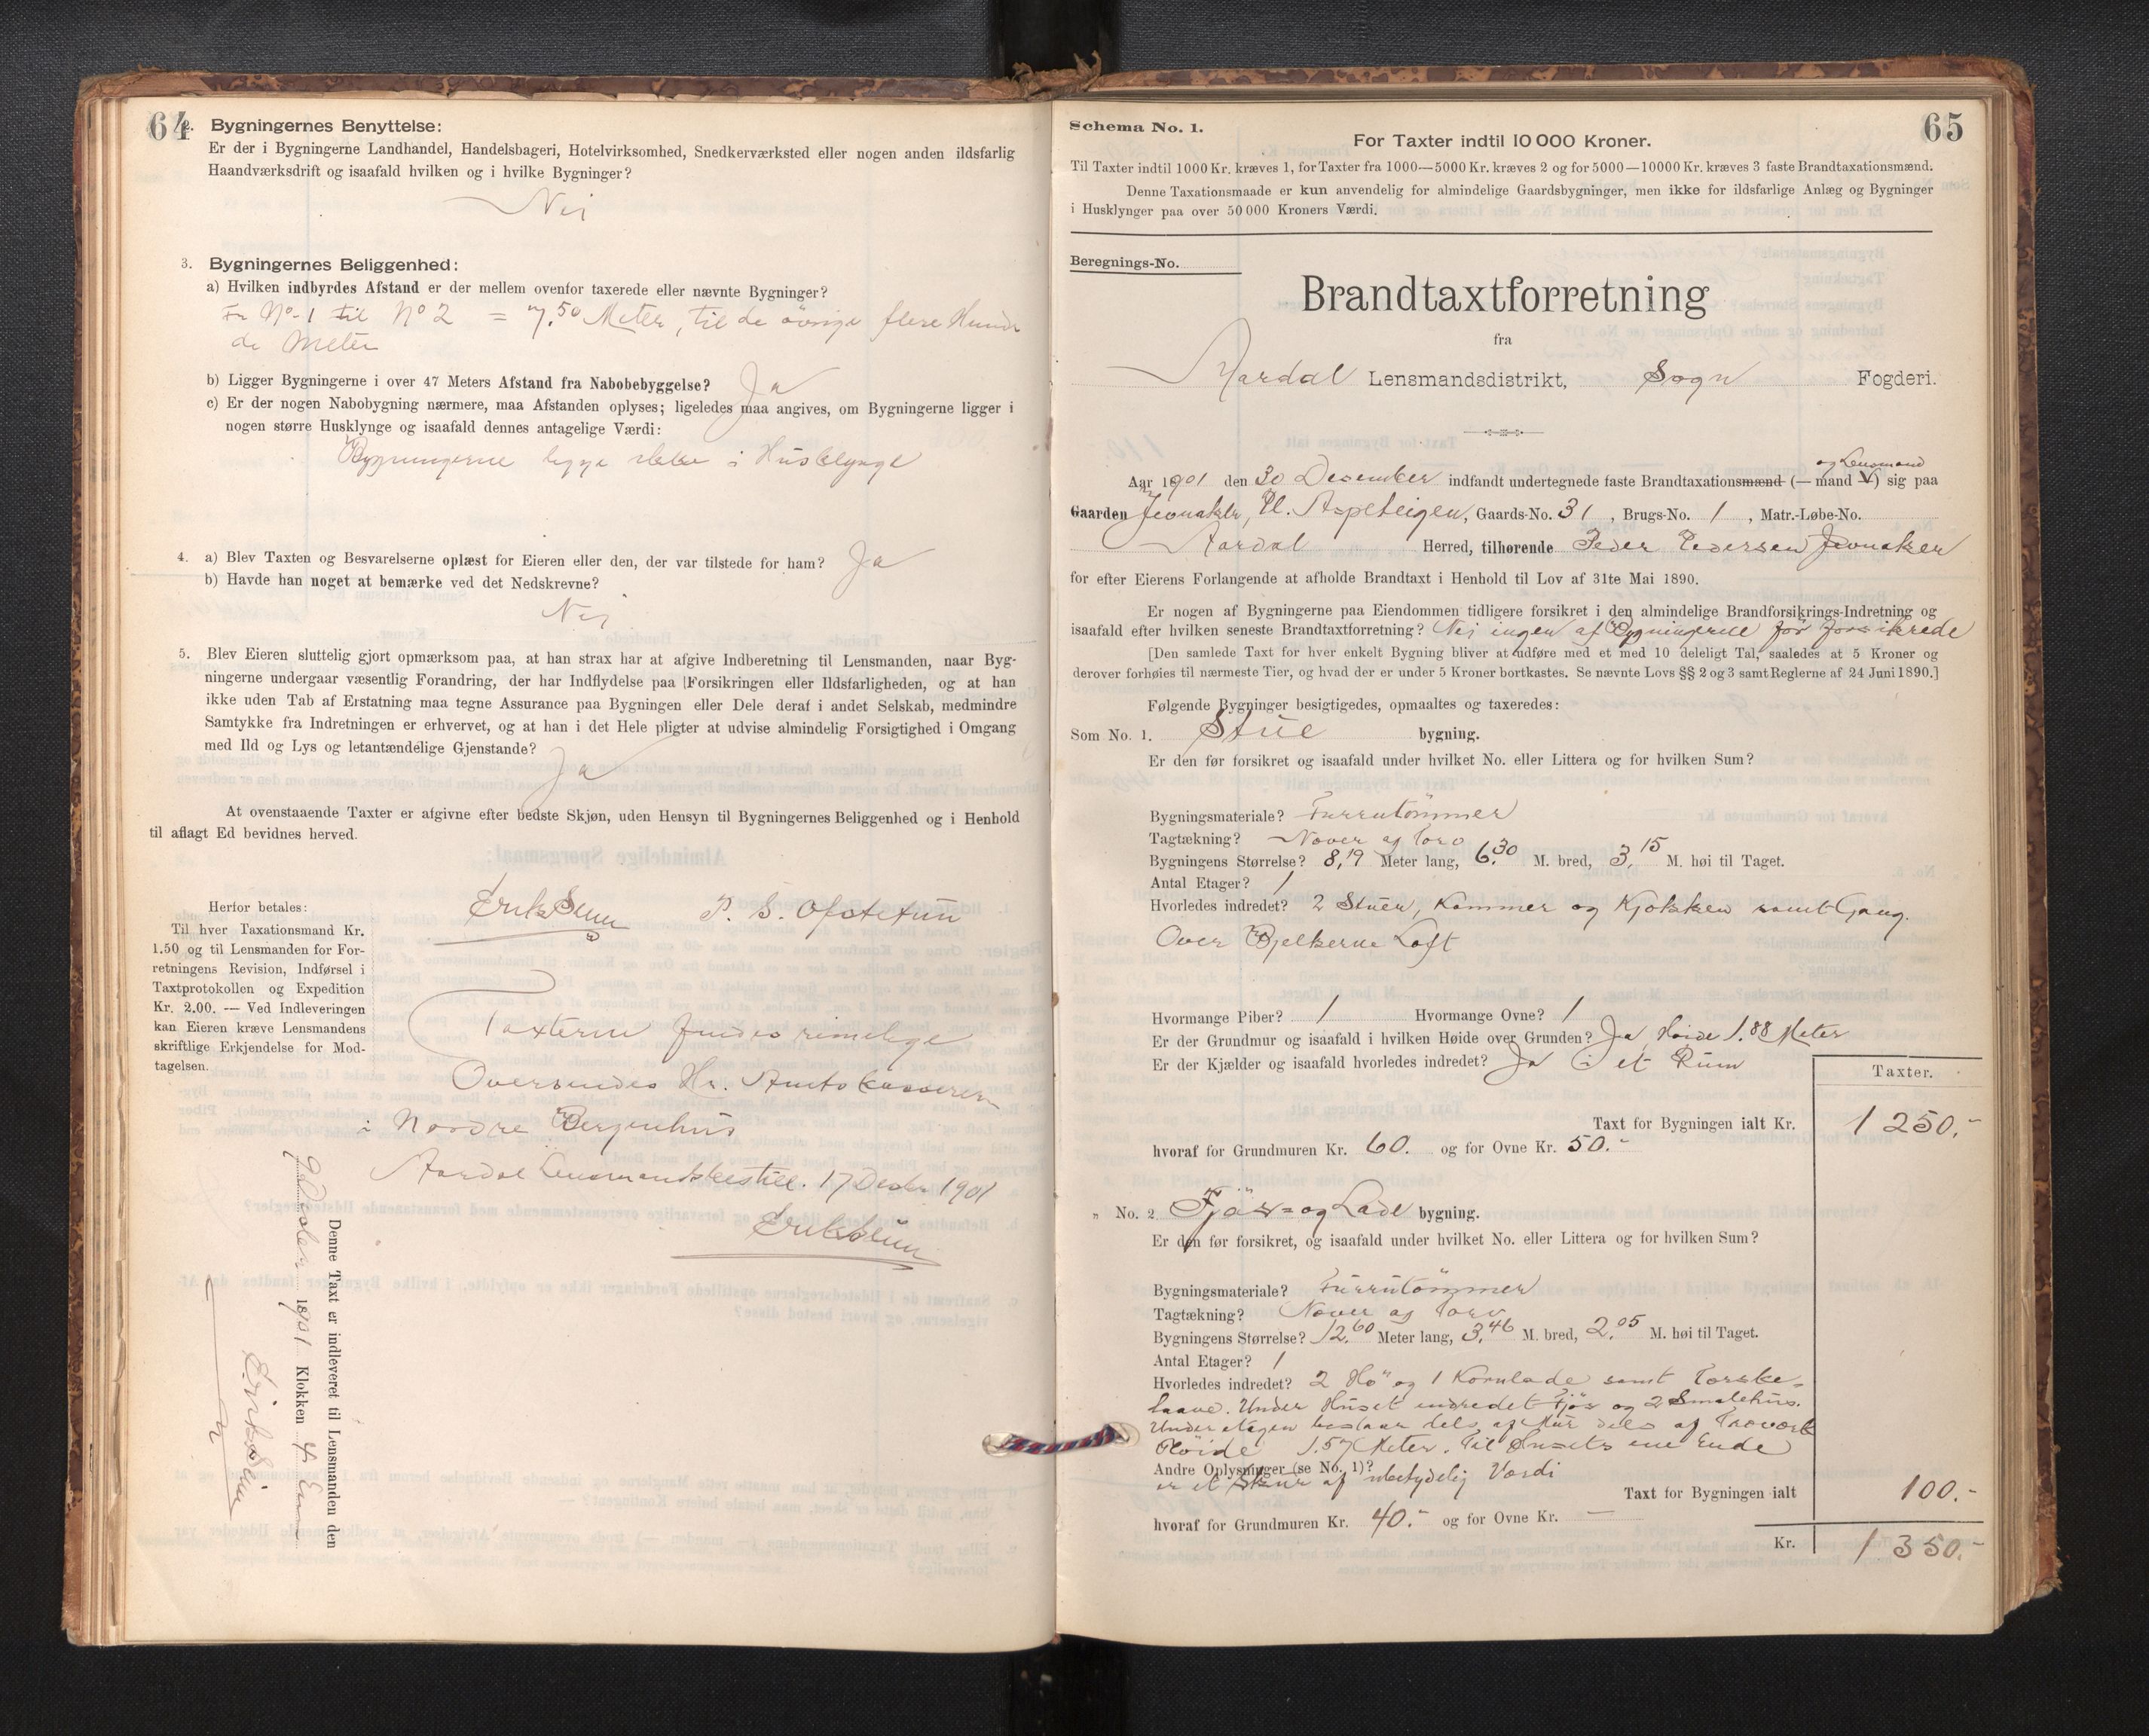 64
2. Bygningernes Benyttelse:
Er der i Bygningerne Landhandel, Handelsbageri, Hotelvirksomhed, Snedkerværksted eller nogen anden ildsfarlig
Haandværksdrift og isaafald hvilken og i hvilke Bygninger?
Nei
3. Bygningernes Beliggenhed:
a) Hvilken indbyrdes Afstand er der mellem ovenfor taxerede eller nævnte Bygninger?
Fr No 1 til No 2 = 7,50 Meter, til de övrige flere Hunde
de Meter
b) Ligger Bygningerne i over 47 Meters Afstand fra Nabobebyggelse? Ja
c) Er der nogen Nabobygning nærmere, maa Afstanden oplyses; ligeledes maa angives, om Bygningerne ligger i
nogen større Husklynge og isaafald dennes antagelige Værdi:
Bygningerne ligge ikke i Husklynge
4. a) Blev Taxten og Besvarelserne oplæst for Eieren eller den, der var tilstede for ham? Ja
b) Havde han noget at bemærke ved det Nedskrevne?
Nei
5. Blev Eieren sluttelig gjort opmærksom paa, at han strax har at afgive Indberetning til Lensmanden, naar Byg-
ningerne undergaar væsentlig Forandring, der har Indflydelse paa Forsikringen eller Ildsfarligheden, og at han
ikke uden Tab af Erstatning maa tegne Assurance paa Bygningen eller Dele deraf i andet Selskab, medmindre
Samtykke fra Indretningen er erhvervet, og at han i det Hele pligter at udvise almindelig Forsigtighed i Omgang
med Ild og Lys og letantændelige Gjenstande?
Ja
At ovenstaaende Taxter er afgivne efter bedste Skjøn, uden Hensyn til Bygningernes Beliggenhed og i Henhold
til aflagt Ed bevidnes herved.
Erik Seim P. S. Ofstetun
Herfor betales:
Til hver Taxationsmand Kr.
1.50 og til Lensmanden for For-
retningens Revision, Indførsel i
Taxtprotokollen og Expedition
Kr. 2.00. — Ved Indleveringen
kan Eieren kræve Lensmandens
skriftlige Erkjendelse for Mod-
tagelsen.
Taxterne findes rimelige
Oversendes Hr. Amtskasserer
i Nordre Bergenhus
Aardal Lensmandsbestill. 17 Decbr 1901
Erik Seim
Denne Taxt er indleveret til Lensmanden den
1901 Klokken 4 Em
Erik Seim
65
Schema No. 1.
For Taxter indtil 10 000 Kroner.
Til Taxter indtil 1000 Kr. kræves 1, for Taxter fra 1000—5000 Kr. kræves 2 og for 5000—10000 Kr. kræves 3 faste Brandtaxationsmænd.
Denne Taxationsmaade er kun anvendelig for almindelige Gaardsbygninger, men ikke for ildsfarlige Anlæg og Bygninger
i Husklynger paa over 50 000 Kroners Værdi.
Beregnings-No.
Brandtaxtforretning
fra
Aardal Lensmandsdistrikt, Sogn Fogderi.
og Lensmand
Aar 1901 den 30 Desember indfandt undertegnede faste Brandtaxationsmænd (— mand V) sig paa
Gaarden Jevnaker, Pl. Aspeteigen, Gaards-No. 31, Brugs-No. 1, Matr.-Løbe-No.
Aardal Herred, tilhørende Peder Pedersen Jevnaker
for efter Eierens Forlangende at afholde Brandtaxt i Henhold til Lov af 31te Mai 1890.
Er nogen af Bygningerne paa Eiendommen tidligere forsikret i den almindelige Brandforsikrings-Indretning og
isaafald efter hvilken seneste Brandtaxtforretning? Nei ingen af Bygningerne før forsikrede
[Den samlede Taxt for hver enkelt Bygning bliver at udføre med et med 10 deleligt Tal, saaledes at 5 Kroner og
derover forhøies til nærmeste Tier, og hvad der er under 5 Kroner bortkastes. Se nævnte Lovs §§ 2 og 3 samt Reglerne af 24 Juni 1890.]
Følgende Bygninger besigtigedes, opmaaltes og taxeredes:
Som No. 1. Stue bygning.
Er den før forsikret og isaafald under hvilket No. eller Littera og for hvilken Sum?
Bygningsmateriale? Furrutömmer
Tagtækning? Næver og Torv
Bygningens Størrelse? 8,19 Meter lang, 6,30 M. bred, 3,15 M. høi til Taget.
Antal Etager? 1
Hvorledes indredet? 2 Stuer, Kammer og Kjøkken samt Gang.
Over Bjelkerne Loft
Hvormange Piber? 1 Hvormange Ovne? 1
Er der Grundmur og isaafald i hvilken Høide over Grunden? Ja, Høide 1.88 Meter
Er der Kjælder og isaafald hvorledes indredet? Ja i et Rum
Taxter.
Taxt for Bygningen ialt Kr. 1250.-
hvoraf for Grundmuren Kr. 60. og for Ovne Kr. 50.-
„ No. 2 Fjös- og Lade bygning.
Er den før forsikret, og isaafald under hvilket No. eller Littera og for hvilken Sum?
Bygningsmateriale? Furrutömmer
Tagtækning? Næver og Torv
Bygningens Størrelse? 12,60 Meter lang, 3,46 M. bred, 2,05 M. høi til Taget.
Antal Etager? 1
Hvorledes indredet? 2 Hö- og 1 Kornlade samt Torske-
laave. Under Huset indredet Fjös og 2 Smalehus.
Under etagen bestaar dels af Mur dels af Træværk
Høide 1.57 Meter. Til Husets ene Ende
Andre Oplysninger (se No. 1)?
er et Skur af ubetydelig Værdi
Taxt for Bygningen ialt 100.-
hvoraf for Grundmuren Kr. 40.- og for Ovne Kr. —
Kr. 1350.-